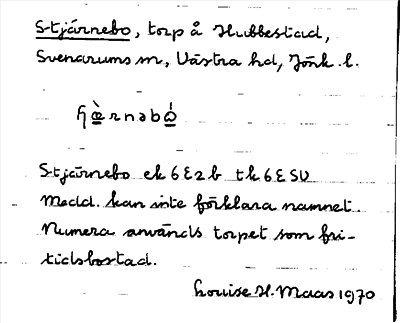 Stjärnebo, torp å Hubbestad,
Svenarums sn, Västra hd, Jönk. l.
ɧæ̀rnəbó
Stjärnebo ek 6E2b tk 6E SV
Medd. kan inte förklara namnet.
Numera används torpet som fri-
tidsbostad.
Louise H. Maas 1970